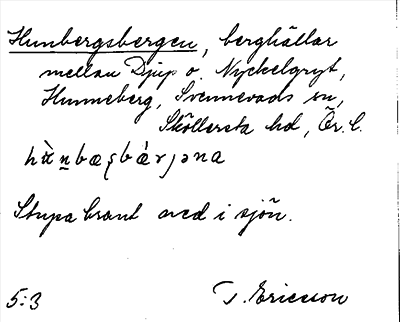 Hunbergsbergen, berghällar
mellan Djup o. Nyckelgryt,
Hunneberg, Svennevads sn,
Sköllersta hd, Ör. l.
Stupa brant ned i sjön.
5:3 T. Ericsson